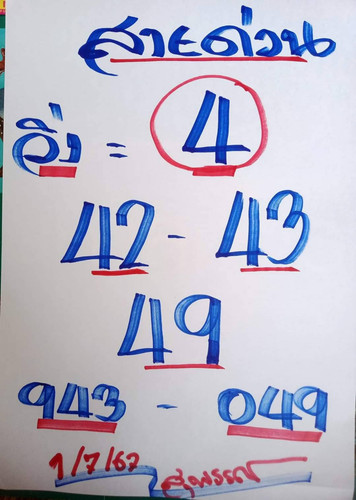 สายด่วน
วิ่ง = 4
42 - 43
49
943 - 049
1/7/67 สุพรรณ